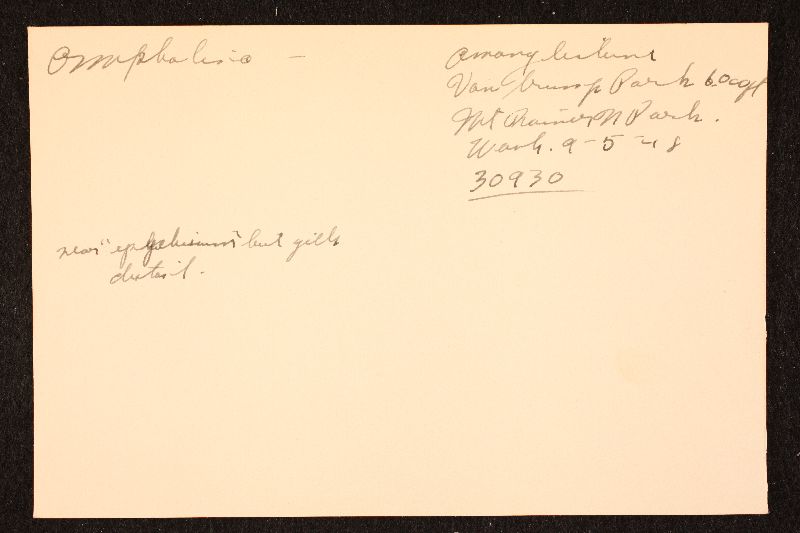 Omphalina —
among
Van Trump Park 6,000 ft
Mt Rainier N Park.
Wash. 9-5-48
30930
near "epichysium" but gills
distant.